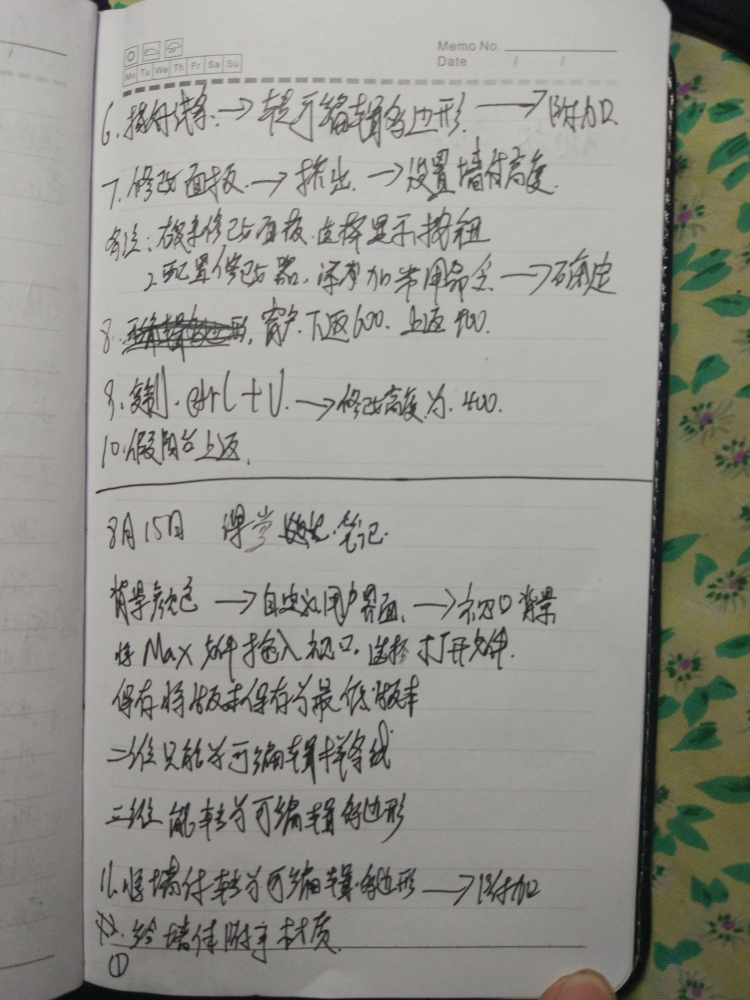 Memo No.
Mo Tu We Th Fr Sa Su
Date / /
6. 转可编辑多边形 → 附加
7. 修改面板 → 挤出 → 设置墙体高度
备注: 修改面板 选择显示按钮
2 配置修改器, 添加常用命令 → 确定
8. 窗户. 下返600. 上返400.
9. 复制. ctrl+V. → 修改高度为. 400.
10. 假阳台上返.
8月15日 课堂 笔记.
背景颜色 → 自定义用户界面. → 视口背景
将Max文件拖入视口. 选择打开文件.
保存将版本保存为最低版本
二维只能为可编辑样条线
三维能转为可编辑多边形
11. 将墙体转为可编辑多边形 → 附加
12. 给墙体附予材质.
①